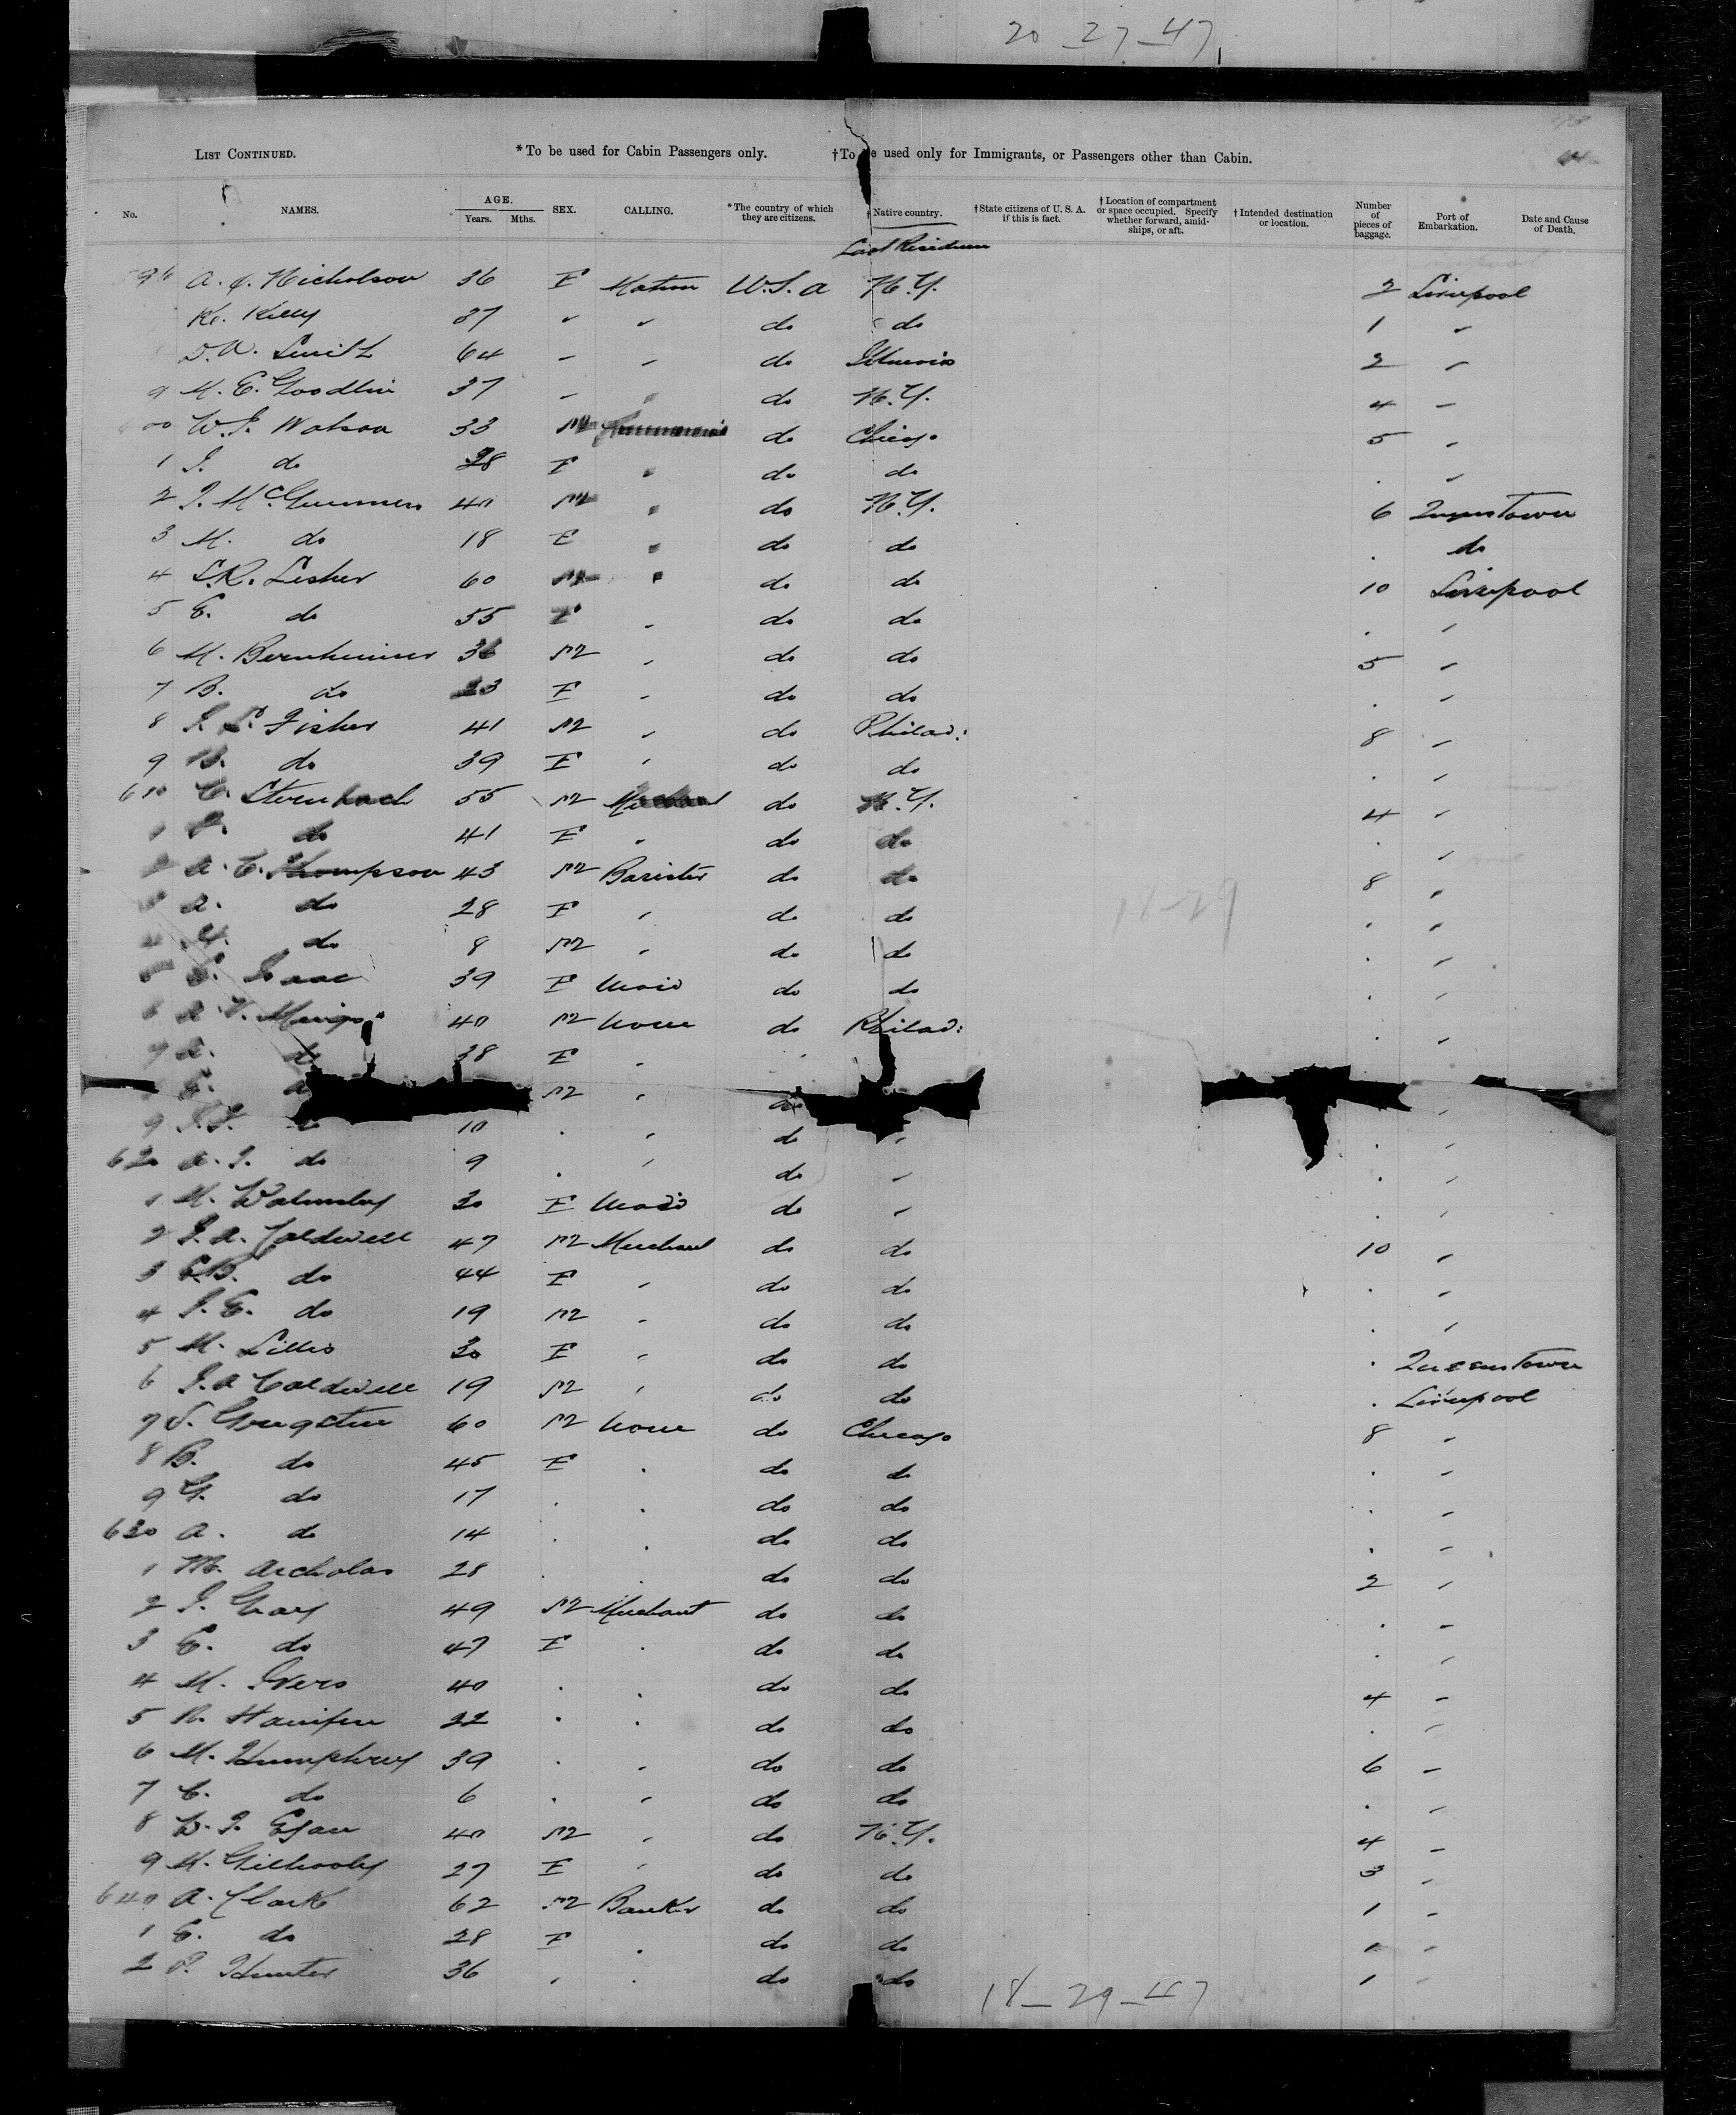 20-27-47
LIST CONTINUED. *To be used for Cabin Passengers only. †To be used only for Immigrants, or Passengers other than Cabin.
No. NAMES. AGE. Years. Mths. SEX. CALLING. *The country of which they are citizens. †Native country. †State citizens of U. S. A. if this is fact. †Location of compartment or space occupied. Specify whether forward, amidships, or aft. †Intended destination or location. Number of pieces of baggage. Port of Embarkation. Date and Cause of Death.
Last Residence
A. J. Nicholson 36 F Matron U.S.a N.Y. 2 Liverpool
K. Kelly 37 " " do do 1 "
D.W. Smith 64 " " do Illinois 2 "
9 M. E. Goodlin 37 " " do N.Y. 4 "
00 W.J. Watson 33 M do Chicago 5 "
1 J. do 28 F " do do . "
2 J. McGuinness 40 M " do N.Y. 6 Queenstown
3 M. do 18 F " do do . do
4 S.R. Lesher 60 M " do do 10 Liverpool
5 E. do 55 F " do do . "
6 M. Bernheimer 36 M " do do 5 "
7 B. do 23 F " do do . "
8 J. L. Fisher 41 M " do Philad: 8 "
9 B. do 39 F " do do . "
610 C. Sternbach 55 M Merchant do N.Y. 4 "
1 do 41 F " do do . "
2 A. C. Thompson 43 M Barister do do 8 "
3 A. do 28 F " do do . "
4 H. do 8 M " do do . "
5 Isaac 39 F Maid do do . "
6 A. V. 40 M None do Philad: . "
7 A. do 38 F "
E. M " do "
9 10 . " do " . "
620 A. J. do 9 . " do " . "
1 M. Walmsley 30 F Maid do " . "
2 J. A. Caldwell 47 M Merchant do do 10 "
3 E.B. do 44 F " do do . "
4 J. E. do 19 M " do do . "
5 M. Lillis 30 F " do do . Queenstown
6 J. A Caldwell 19 M " do do . Liverpool
7 S. 60 M None do Chicago 8 "
8 B. do 45 F . do do . "
9 G. do 17 . . do do . "
630 A. do 14 . . do do . "
1 M. 28 . . do do 2 "
2 J. Gray 49 M Merchant do do . "
3 E. do 47 F . do do . "
4 M. Ivers 40 . . do do 4 "
5 N. Hanifen 22 . . do do . "
6 M. Humphrey 39 . " do do 6 "
7 C. do 6 . " do do . "
8 W. J. Egan 40 M " do N.Y. 4 "
9 M. Gilhooly 27 F " do do 3 "
640 A. Clark 62 M Banker do do 1 "
1 E. do 28 F . do do 1 "
2 P. Hunter 36 " . do do 1 "
18-29
18-29-47